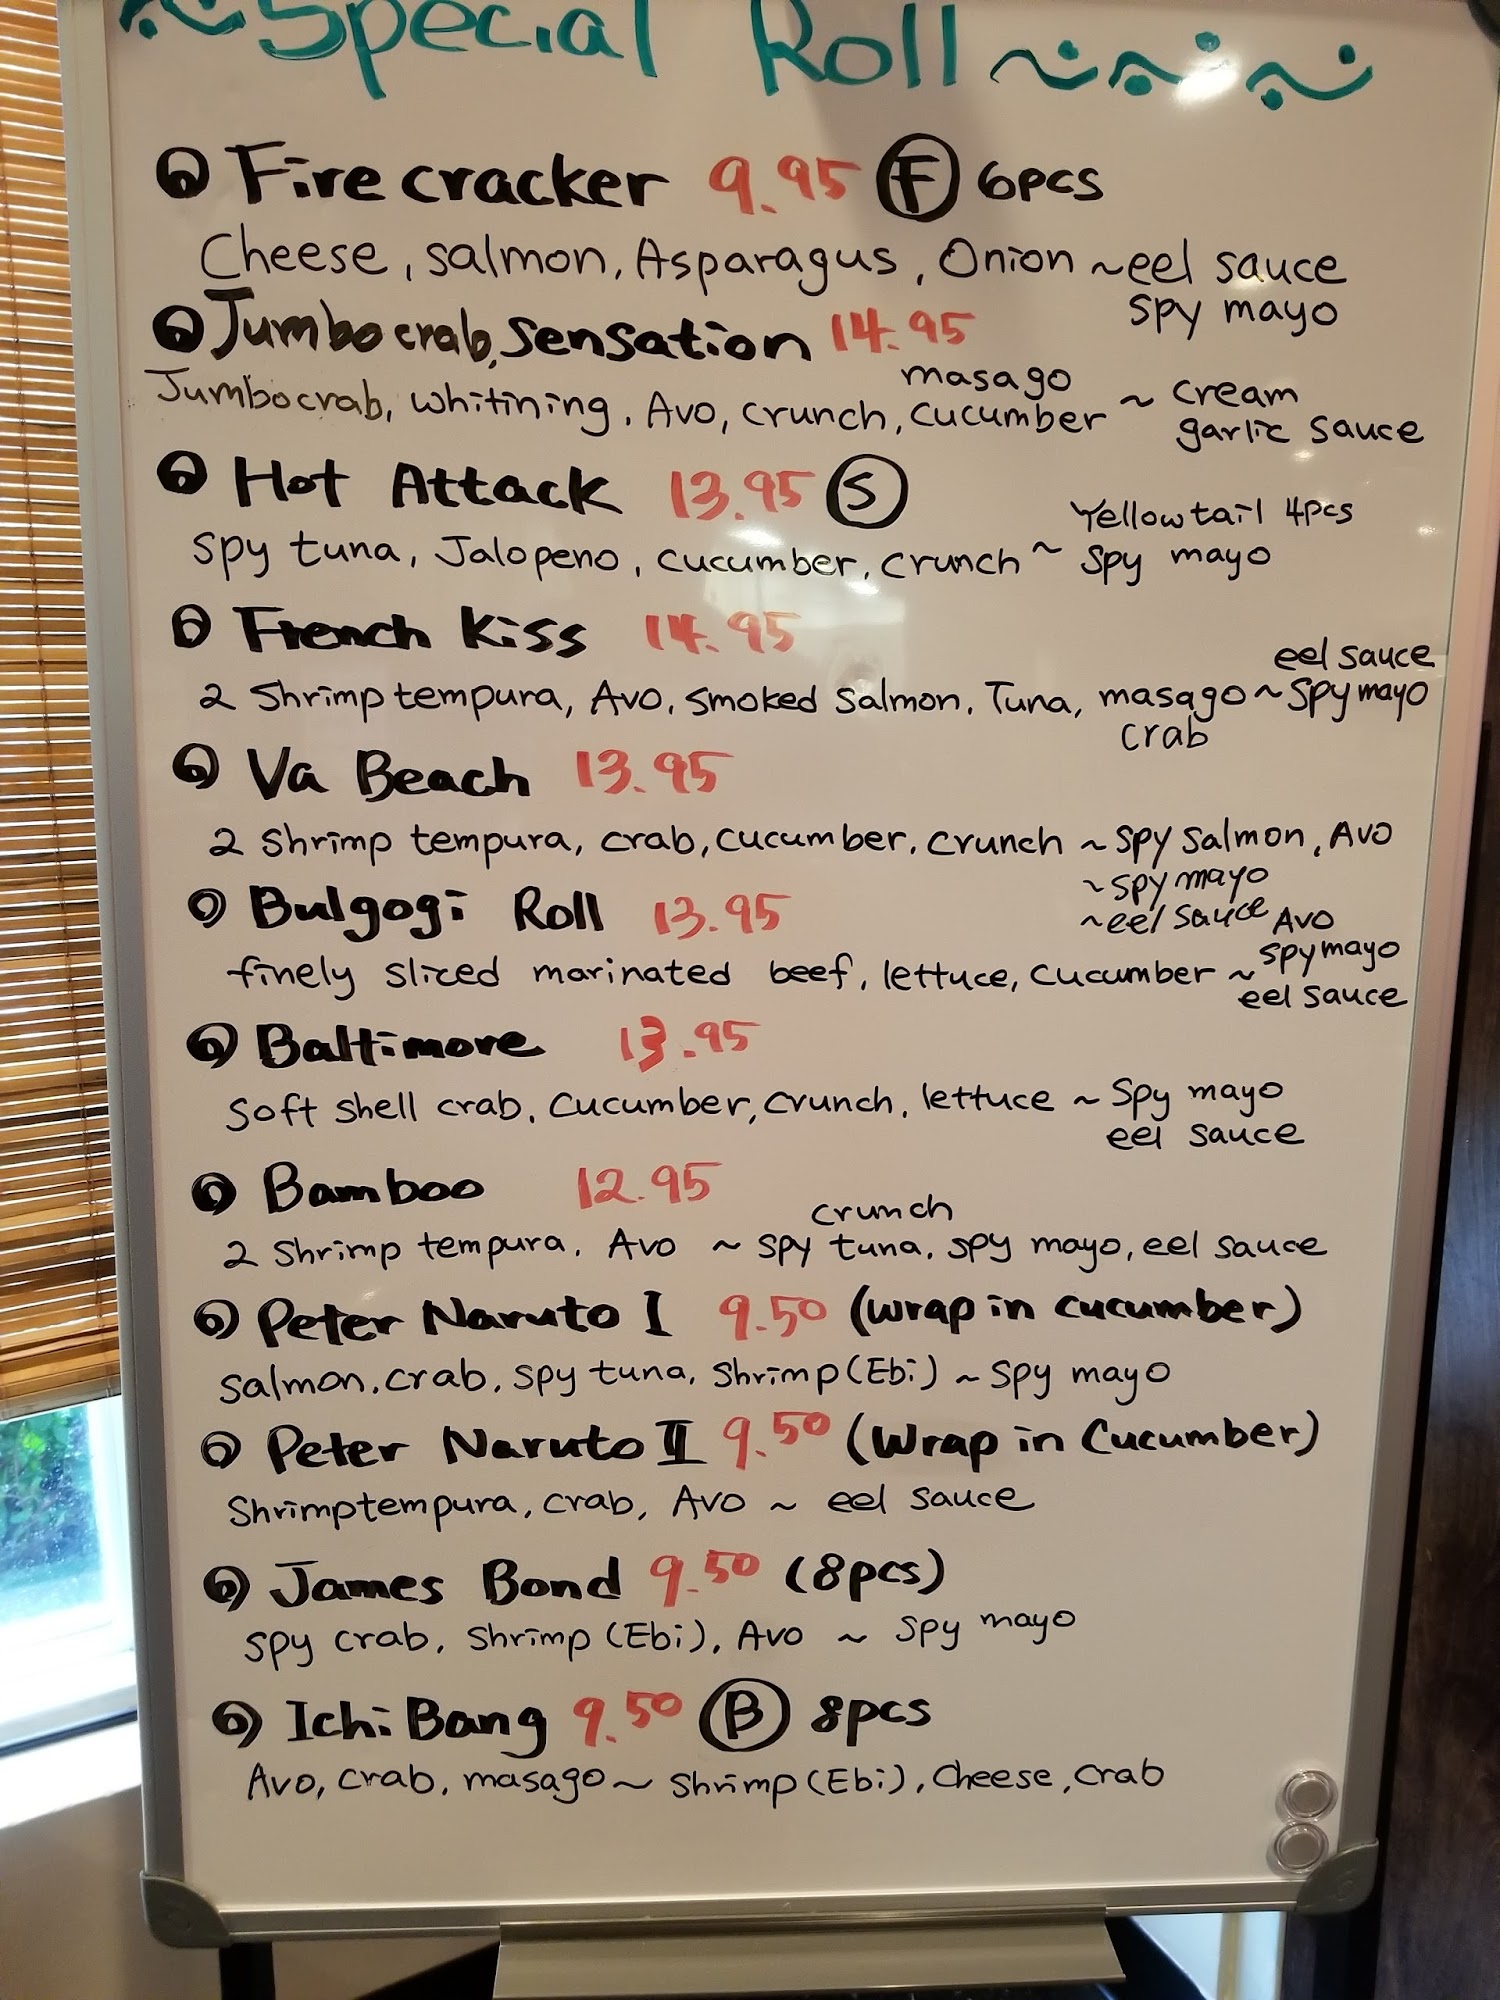 Special Roll
Fire cracker 9.95 F 6pcs
Cheese, salmon, Asparagus, Onion ~eel sauce
spy mayo
Jumbo crab, Sensation 14.95
masago
Jumbocrab, whitining, Avo, crunch, cucumber ~ cream
garlic sauce
Hot Attack 13.95 S
Yellowtail 4pcs
spy tuna, Jalopeno, cucumber, crunch ~ spy mayo
French Kiss 14.95
eel sauce
2 Shrimp tempura, Avo, smoked salmon, Tuna, masago ~spy mayo
crab
Va Beach 13.95
2 Shrimp tempura, crab, cucumber, crunch ~ spy salmon, Avo
~spy mayo
~eel sauce
Bulgogi Roll 13.95
Avo
spy mayo
finely sliced marinated beef, lettuce, cucumber ~
eel sauce
Baltimore 13.95
Soft shell crab, cucumber, crunch, lettuce ~ spy mayo
eel sauce
Bamboo 12.95
crunch
2 Shrimp tempura, Avo ~ spy tuna, spy mayo, eel sauce
Peter Naruto I 9.50 (wrap in cucumber)
salmon, crab, spy tuna, Shrimp (Ebi) ~ spy mayo
Peter Naruto II 9.50 (Wrap in Cucumber)
Shrimptempura, crab, Avo ~ eel sauce
James Bond 9.50 (8pcs)
spy crab, Shrimp (Ebi), Avo ~ spy mayo
Ichi Bang 9.50 B 8pcs
Avo, crab, masago ~ Shrimp (Ebi), Cheese, crab